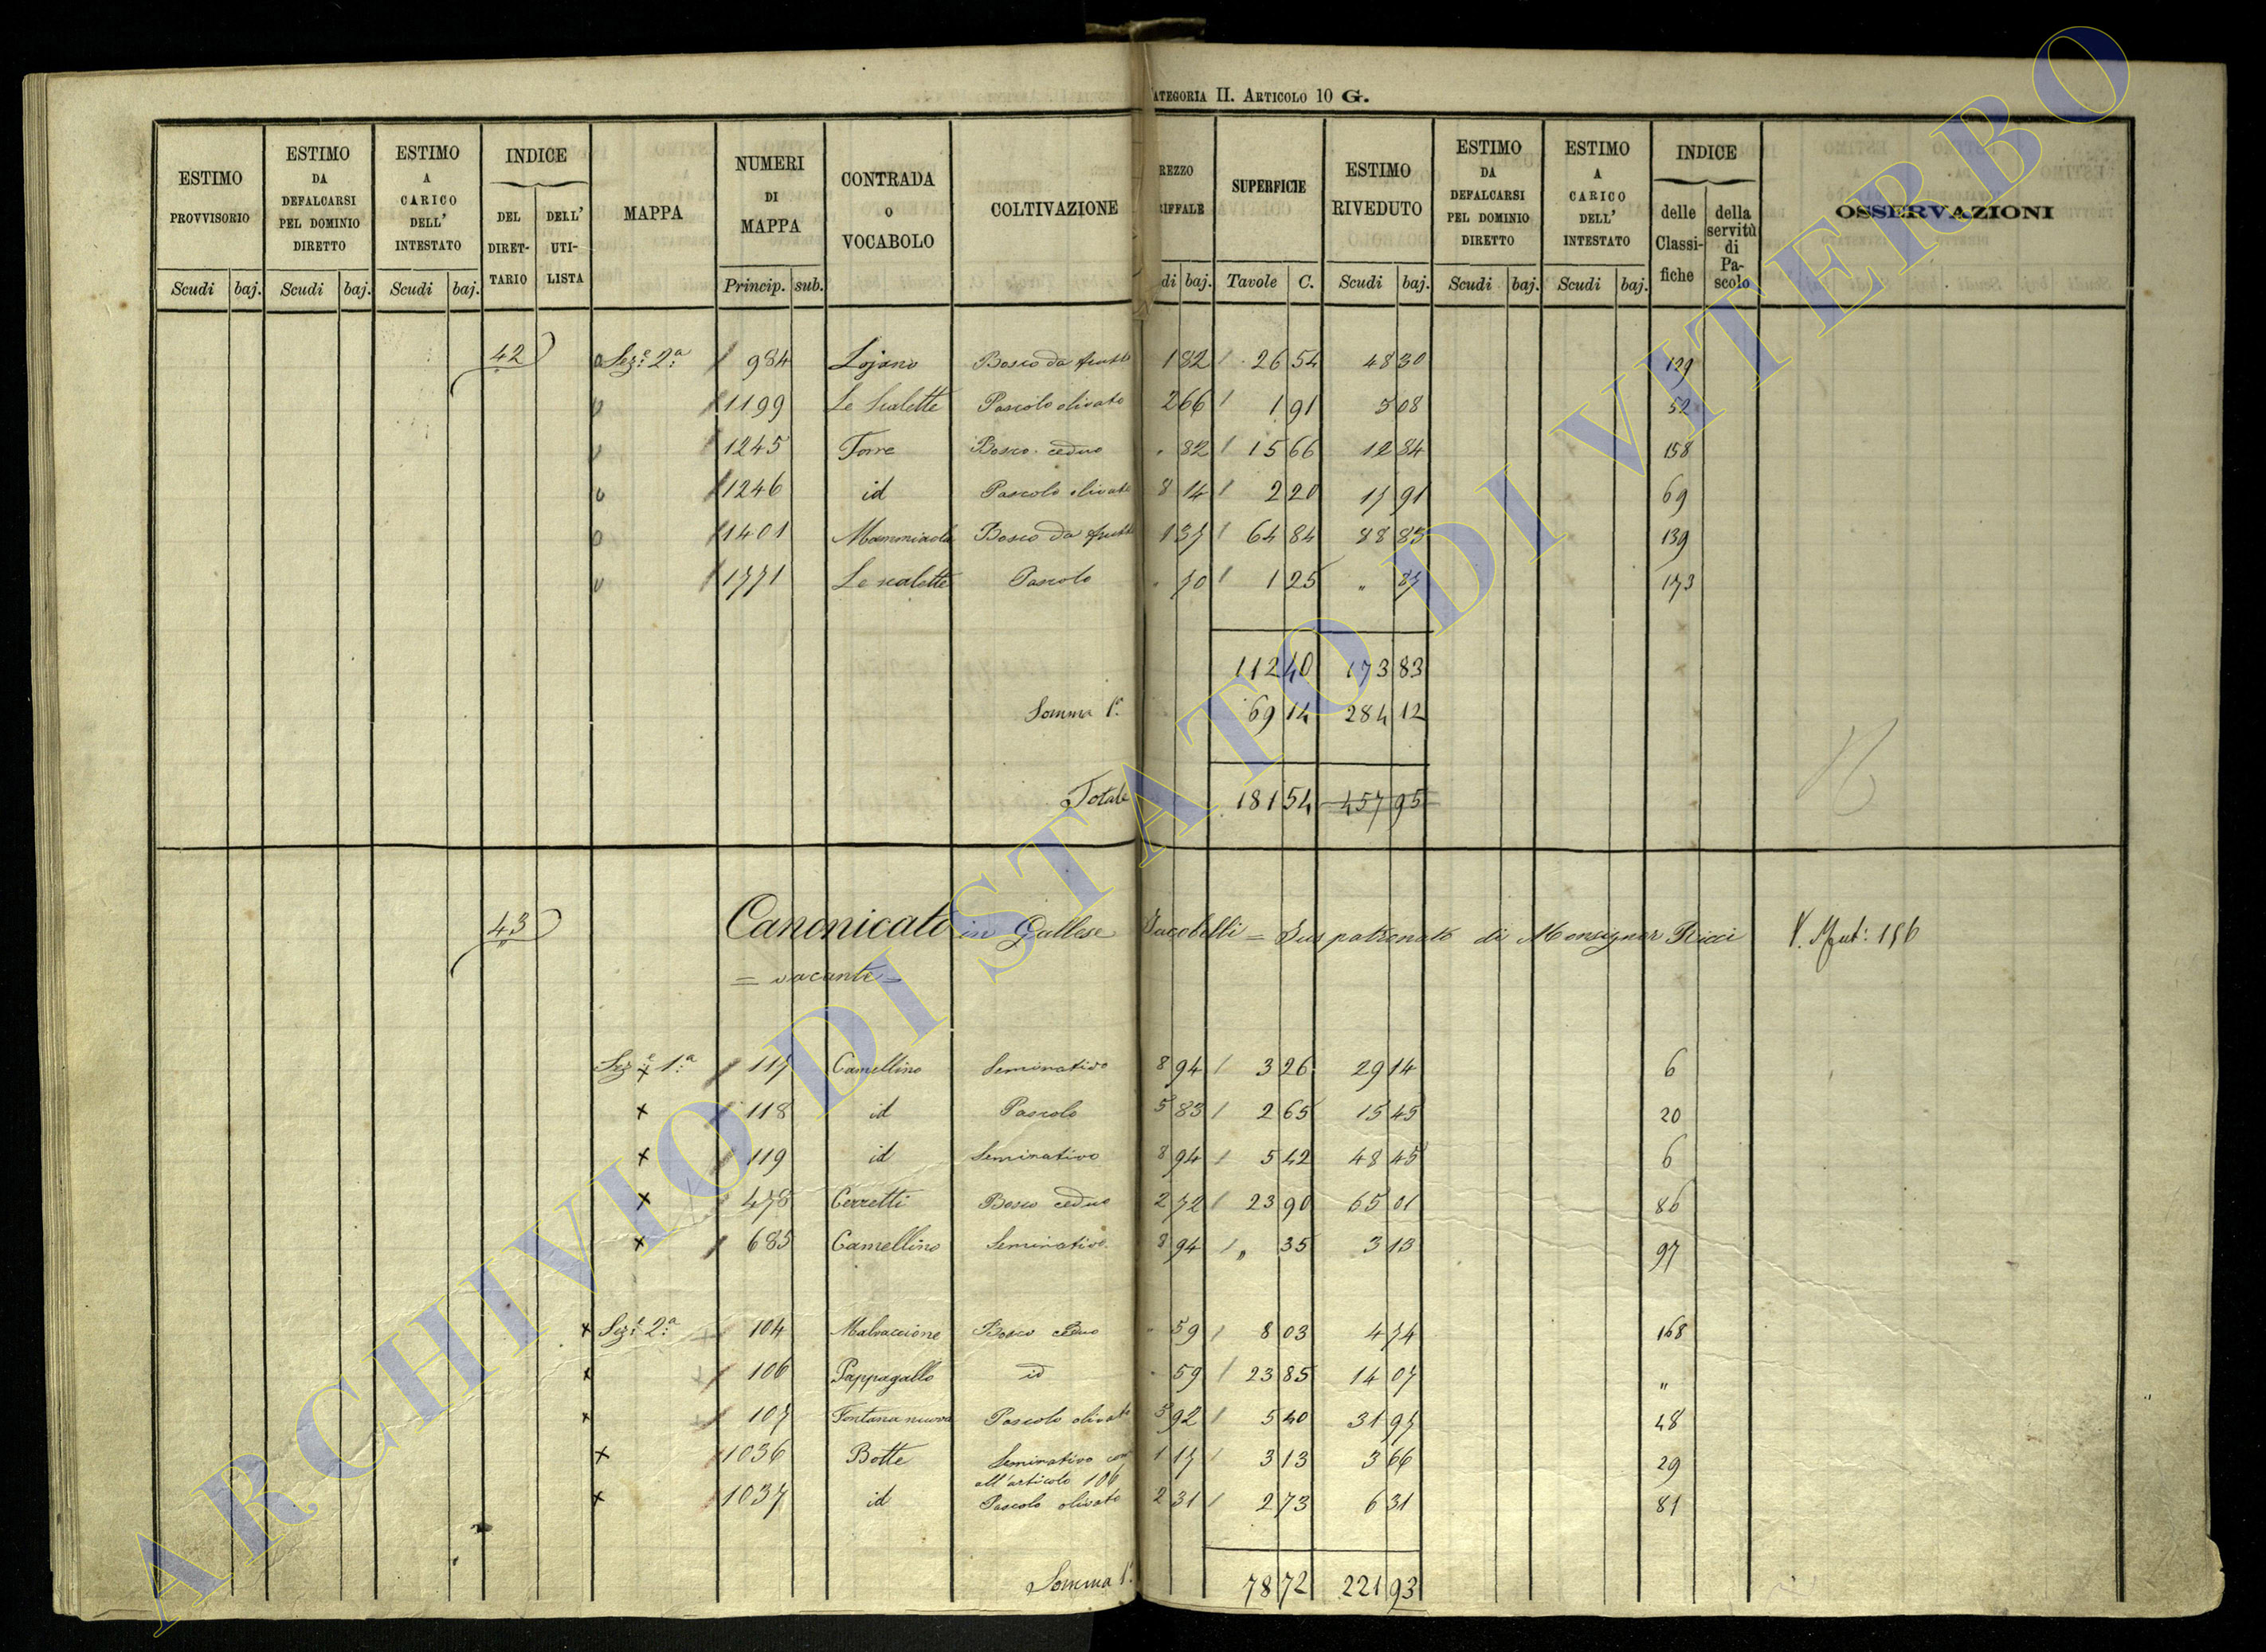 CATEGORIA II. ARTICOLO 10 G.
ESTIMO PROVVISORIO | ESTIMO DA DEFALCARSI PEL DOMINIO DIRETTO | ESTIMO A CARICO DELL' INTESTATO | INDICE DEL DIRETTARIO | DELL' UTILISTA | MAPPA | NUMERI DI MAPPA | CONTRADA O VOCABOLO | COLTIVAZIONE | REZZO RIFFALE | SUPERFICIE | ESTIMO RIVEDUTO | ESTIMO DA DEFALCARSI PEL DOMINIO DIRETTO | ESTIMO A CARICO DELL' INTESTATO | INDICE delle Classifiche | della servitù di Pascolo | OSSERVAZIONI
Scudi baj. Scudi baj. Scudi baj. Princip. sub. di baj. Tavole C. Scudi baj. Scudi baj. Scudi baj.
42 Sez.e 2.a 984 Lojano Bosco da frutto 1 82 26 54 48 30 139
1199 Le Scalette Pascolo olivato 2 66 1 91 5 08 52
1245 Torre Bosco ceduo " 82 15 66 12 84 158
1246 id Pascolo olivato 8 14 2 20 17 91 69
1401 Mammiaola Bosco da frutto 1 37 64 84 88 83 139
1771 Le scalette Pascolo " 70 1 25 " 87 173
112 40 173 83
Somma 1.a 69 14 284 12
Totale 181 54 457 95
43 Canonicato in Gallese Jacobelli = Jus patronato di Monsignor Ricci V. Mut: 156
= vacante =
Sez.e 1.a 117 Camellino Seminativo 8 94 3 26 29 14 6
x 118 id Pascolo 5 83 2 65 15 45 20
x 119 id Seminativo 8 94 5 42 48 45 6
x 478 Cerretti Bosco ceduo 2 72 23 90 65 01 86
x 685 Camellino Seminativo 8 94 " 35 3 13 97
x Sez.e 2.a 104 Malvaccione Bosco ceduo " 59 8 03 4 74 168
x 106 Pappagallo id " 59 23 85 14 07 "
x 107 Fontana nuova Pascolo olivato 5 92 5 40 31 97 48
x 1036 Botte Seminativo con 1 17 3 13 3 66 29
all'articolo 106
x 1037 id Pascolo olivato 2 31 2 73 6 31 81
Somma 1.a 78 72 221 93
ARCHIVIO DI STATO DI VITERBO